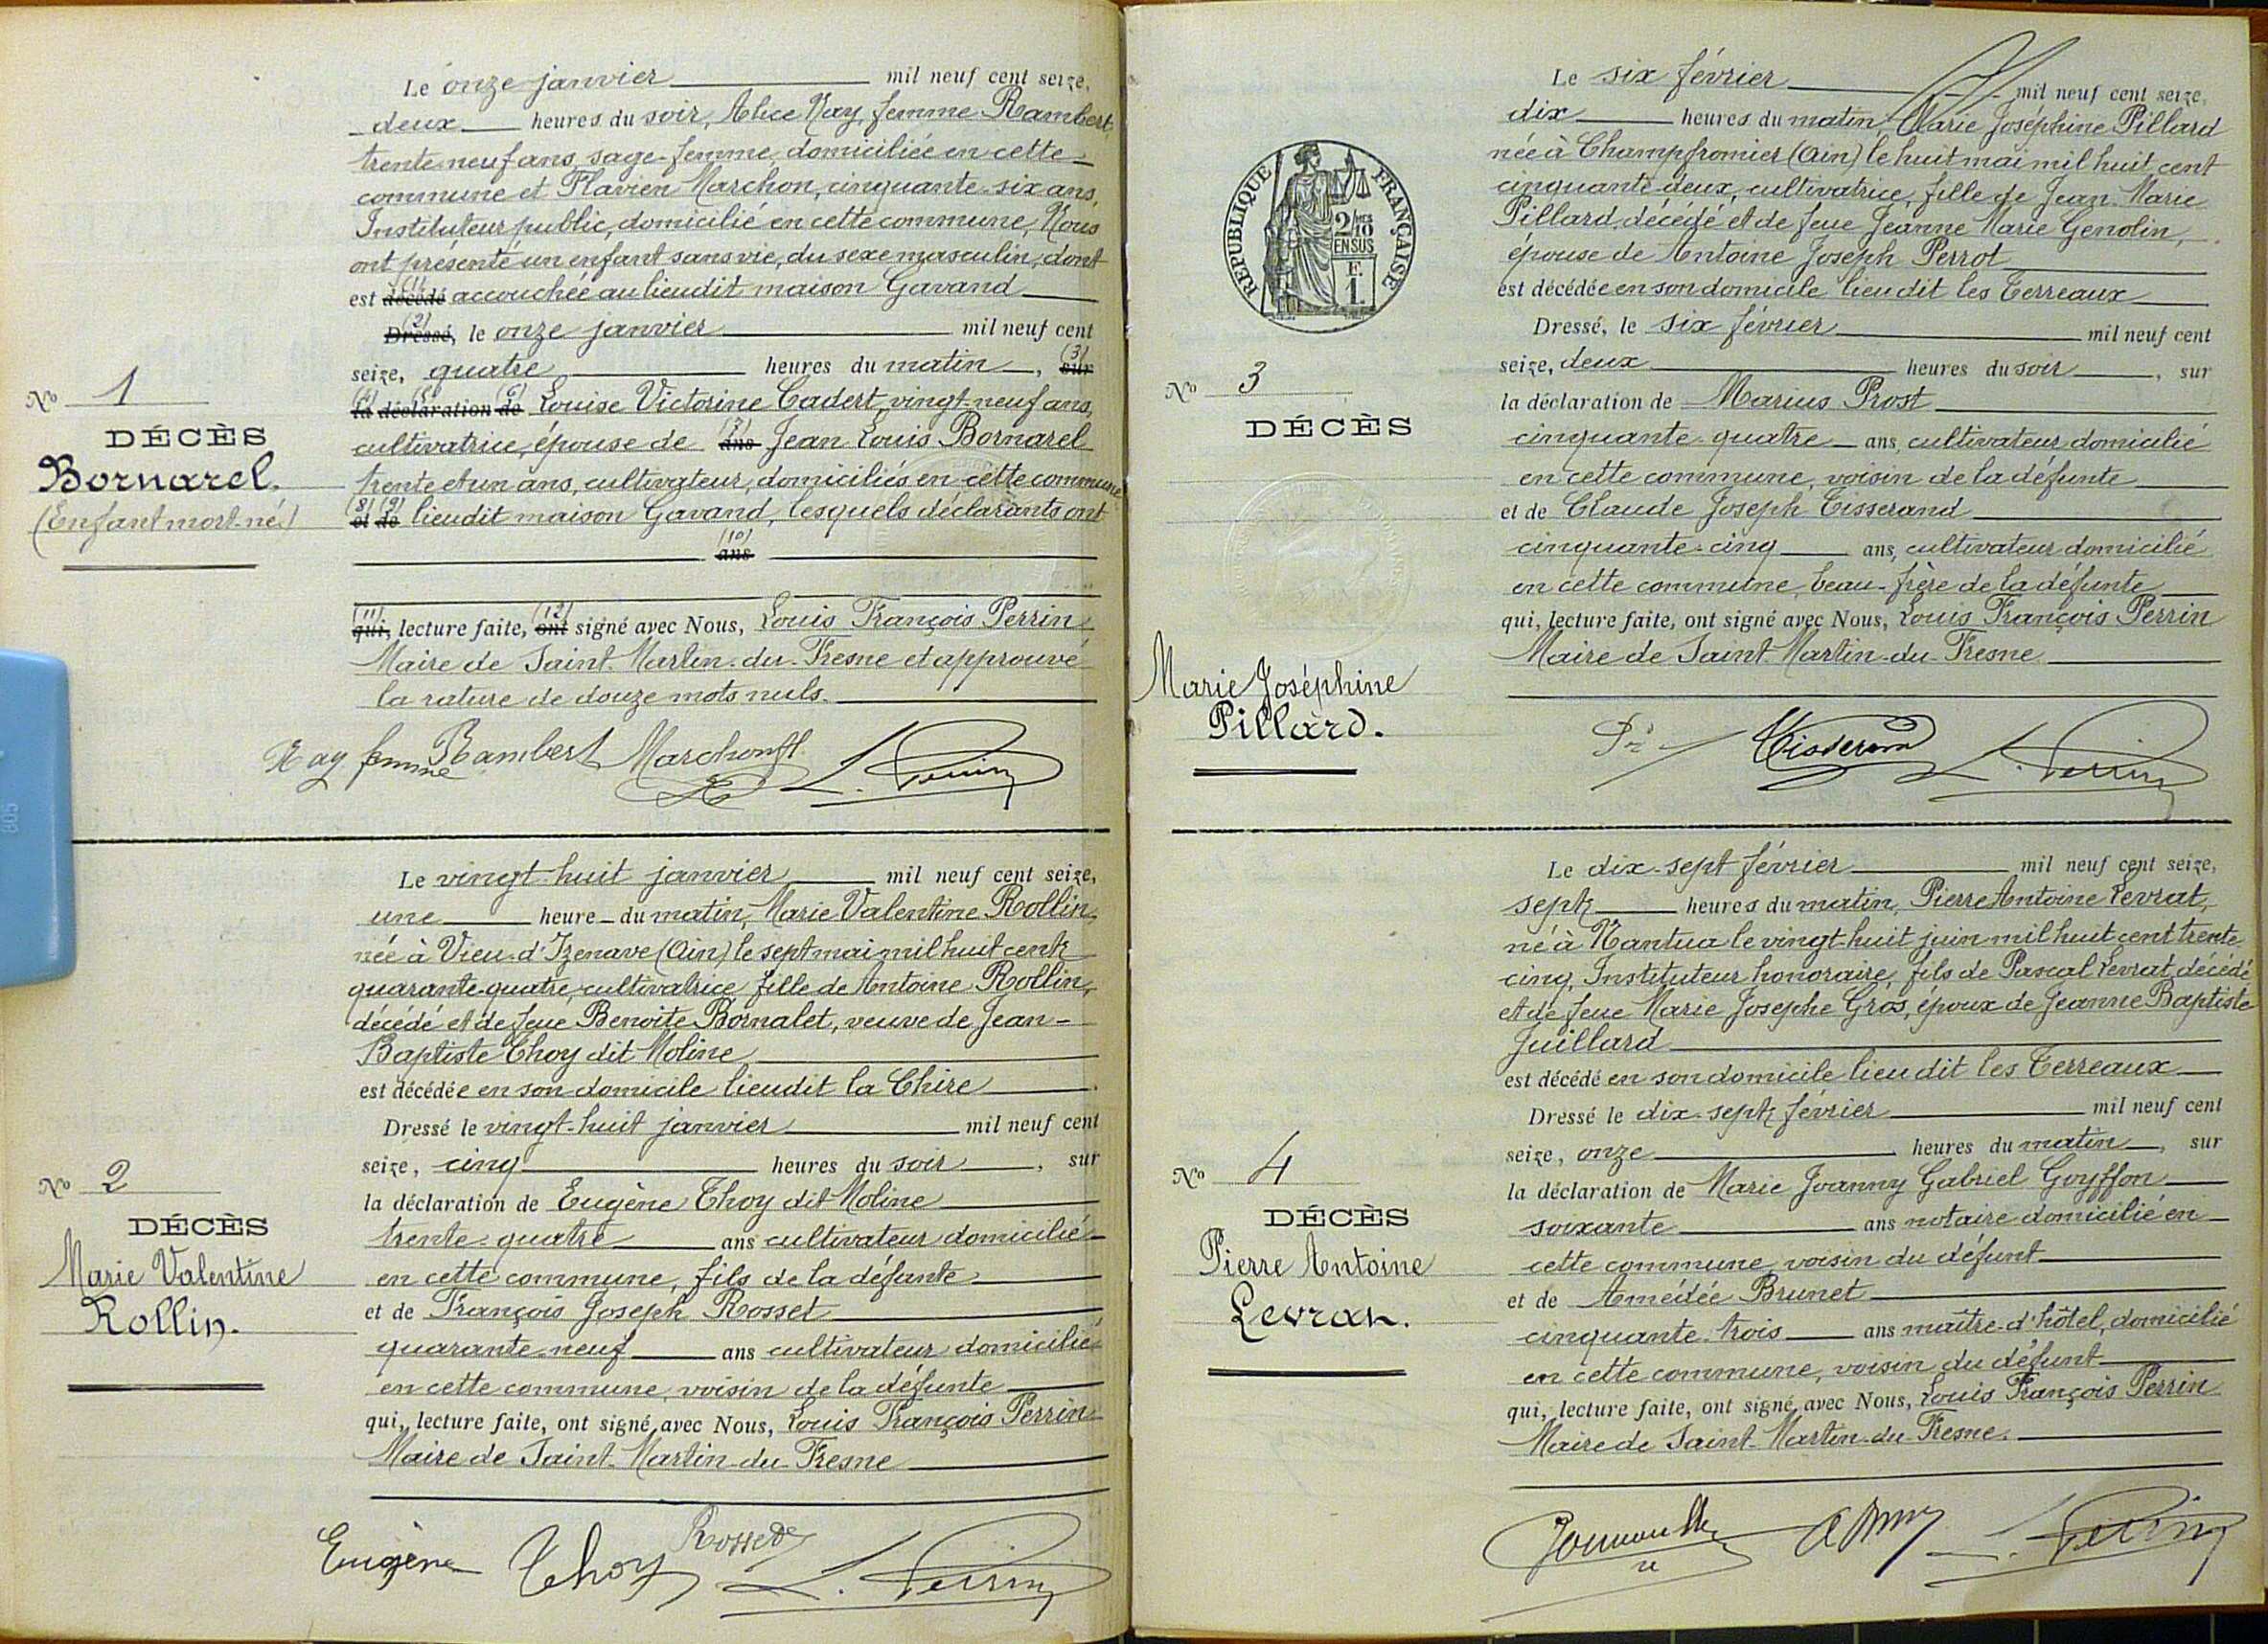 Le onze janvier mil neuf cent seize,
deux heures du soir, Alice Nay, femme Rambert,
trente-neuf ans, sage-femme, domiciliée en cette
commune et Flavien Marchon, cinquante-six ans,
Instituteur public, domicilié en cette commune, Nous
ont présenté un enfant sans vie, du sexe masculin, dont
est (1) décédé accouchée au lieudit maison Gavand
(2) Dressé, le onze janvier mil neuf cent
seize, quatre heures du matin, (3) sur
No 1
(4) la (5) déclaration (6) de Louise Victorine Cadert, vingt-neuf ans,
DÉCÈS
cultivatrice, épouse de (7) ans Jean Louis Bornarel
Bornarel.
trente et un ans, cultivateur, domiciliés en cette commune
(Enfant mort-né)
(8) et (9) de lieudit maison Gavand, lesquels déclarants ont
(10) ans
(11) qui, lecture faite, (12) ont signé avec Nous, Louis François Perrin
Maire de Saint-Martin-du-Fresne et approuvé
la rature de douze mots nuls.
Nay femme Rambert Marchon L. Perrin
Le vingt-huit janvier mil neuf cent seize,
une heure du matin, Marie Valentine Rollin,
née à Vieu-d'Izenave (Ain) le sept mai mil huit cent
quarante-quatre, cultivatrice, fille de Antoine Rollin,
décédé et de feue Benoîte Bornalet, veuve de Jean-
Baptiste Thoy dit Moline
est décédée en son domicile lieudit la Chire
Dressé le vingt-huit janvier mil neuf cent
seize, cinq heures du soir, sur
No 2
la déclaration de Eugène Thoy dit Moline
DÉCÈS
trente-quatre ans cultivateur domicilié
Marie Valentine
en cette commune, fils de la défunte
Rollin.
et de François Joseph Rosset
quarante-neuf ans cultivateur domicilié
en cette commune, voisin de la défunte
qui, lecture faite, ont signé avec Nous, Louis François Perrin
Maire de Saint-Martin-du-Fresne
Eugène Thoy Rosset L. Perrin
Le six février mil neuf cent seize,
dix heures du matin, Marie Joséphine Pillard
née à Champfromier (Ain) le huit mai mil huit cent
cinquante-deux, cultivatrice, fille de Jean-Marie
Pillard, décédé et de feue Jeanne Marie Genolin,
épouse de Antoine Joseph Perrot
est décédée en son domicile lieu dit les Terreaux
RÉPUBLIQUE FRANÇAISE
2/10 EN SUS
F. 1
Dressé, le six février mil neuf cent
seize, deux heures du soir, sur
No 3
la déclaration de Marius Prost
DÉCÈS
cinquante-quatre ans, cultivateur domicilié
en cette commune, voisin de la défunte
et de Claude Joseph Tisserand
cinquante-cinq ans, cultivateur domicilié
en cette commune, beau-frère de la défunte
qui, lecture faite, ont signé avec Nous, Louis François Perrin
Maire de Saint-Martin-du-Fresne
Marie Joséphine
Pillard.
Tisserand L. Perrin
Le dix-sept février mil neuf cent seize,
sept heures du matin, Pierre Antoine Levrat,
né à Nantua le vingt-huit juin mil huit cent trente-
cinq, Instituteur honoraire, fils de Pascal Levrat, décédé
et de feue Marie Josephe Gros, époux de Jeanne Baptiste
Juillard
est décédé en son domicile lieu dit les Terreaux
Dressé le dix-sept février mil neuf cent
seize, onze heures du matin, sur
No 4
la déclaration de Marie Joanny Gabriel Goyffon
DÉCÈS
soixante ans notaire domicilié en
Pierre Antoine
cette commune, voisin du défunt
Levrat.
et de Amédée Brunet
cinquante-trois ans maître-d'hôtel, domicilié
en cette commune, voisin du défunt
qui, lecture faite, ont signé avec Nous, Louis François Perrin
Maire de Saint-Martin-du-Fresne.
L. Perrin
805